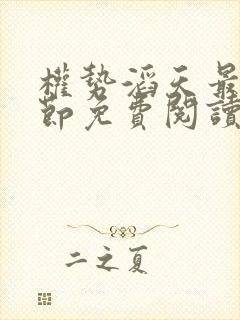 權勢滔天最
節免費閱讀
二之夏